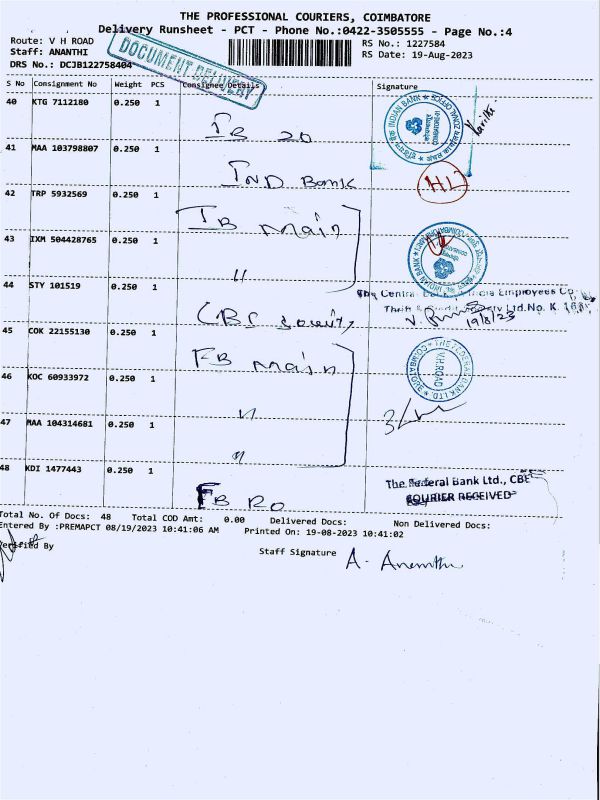 THE PROFESSIONAL COURIERS, COIMBATORE
Delivery Runsheet - PCT - Phone No.:0422-3505555 - Page No.:4
Route: V H ROAD
RS No.: 1227584
Staff: ANANTHI
RS Date: 19-Aug-2023
DRS No.: DCJB122758404
DOCUMENT DELIVERY
S No Consignment No Weight PCS Consignee Details Signature
40 KTG 7112180 0.250 1
IB ZO
41 MAA 103798807 0.250 1
IND Bank
HL
42 TRP 5932569 0.250 1
IB Main
43 IXM 504428765 0.250 1
"
INDIAN BANK
44 STY 101519 0.250 1
CBS Society
The Central Employees Co
Thrift & Ltd.No. K.
19/8/23
45 COK 22155130 0.250 1
FB Main
THE FEDERAL BANK LTD.
V.H.ROAD
COIMBATORE
46 KOC 60933972 0.250 1
"
47 MAA 104314681 0.250 1
"
48 KDI 1477443 0.250 1
FB RO
The Federal Bank Ltd., CBE
COURIER RECEIVED
Total No. Of Docs: 48 Total COD Amt: 0.00 Delivered Docs: Non Delivered Docs:
Entered By :PREMAPCT 08/19/2023 10:41:06 AM Printed On: 19-08-2023 10:41:02
Verified By
Staff Signature A. Ananthi